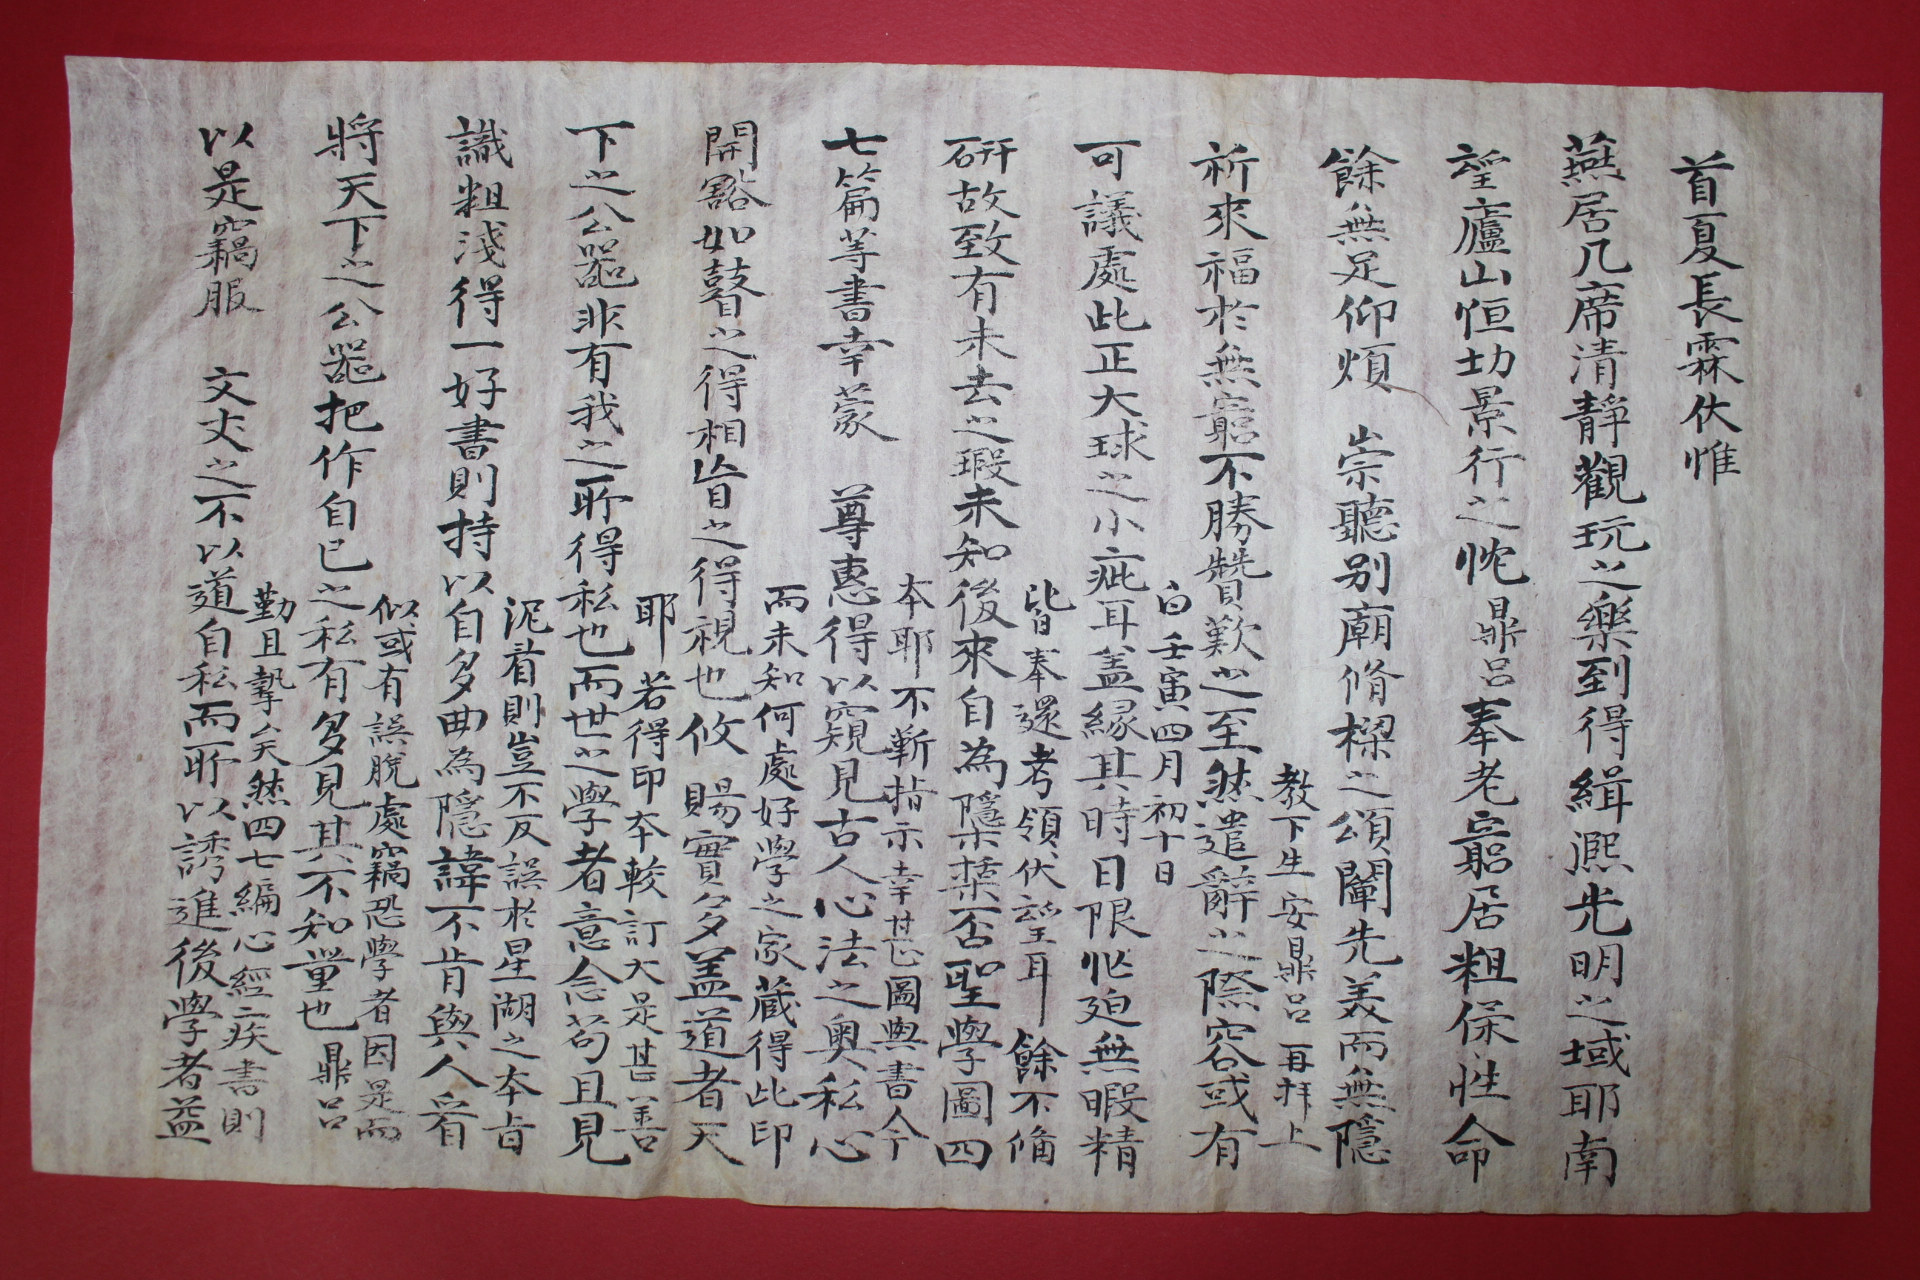 首夏長霖伏惟
燕居几席清靜觀玩之樂到得緝熙光明之域耶南
望廬山恒切景行之忱鼎呂奉老窮居粗保性命
餘無足仰煩 崇聽別廟脩樑之頌闡先美而無隱
祈來福於無窮不勝贊歎之至然遣辭之際容或有
可議處此正大球之小疵耳盖緣其時日限忙迫無暇精
硏故致有未去之瑕未知後來自為檃栝否聖學圖四
七篇等書幸蒙 尊惠得以窺見古人心法之奧私心
開豁如瞽之得相盲之得視也攸 賜實多盖道者天
下之公器非有我之所得私也而世之學者意念苟且見
識粗淺得一好書則持以自多曲為隱諱不肯與人看
將天下之公器把作自己之私有多見其不知量也鼎呂
以是竊服 文丈之不以道自私而所以誘進後學者益
勤且摯矣然四七編心經二疾書則
似或有誤脫處竊恐學者因是而
泥看則豈不反誤於星湖之本旨
耶 若得印本較訂大是甚善
而未知何處好學之家藏得此印
本耶不靳指示幸甚圖與書今
皆奉還考領伏望耳 餘不備
白 壬寅四月初十日
教下生安鼎呂再拜上